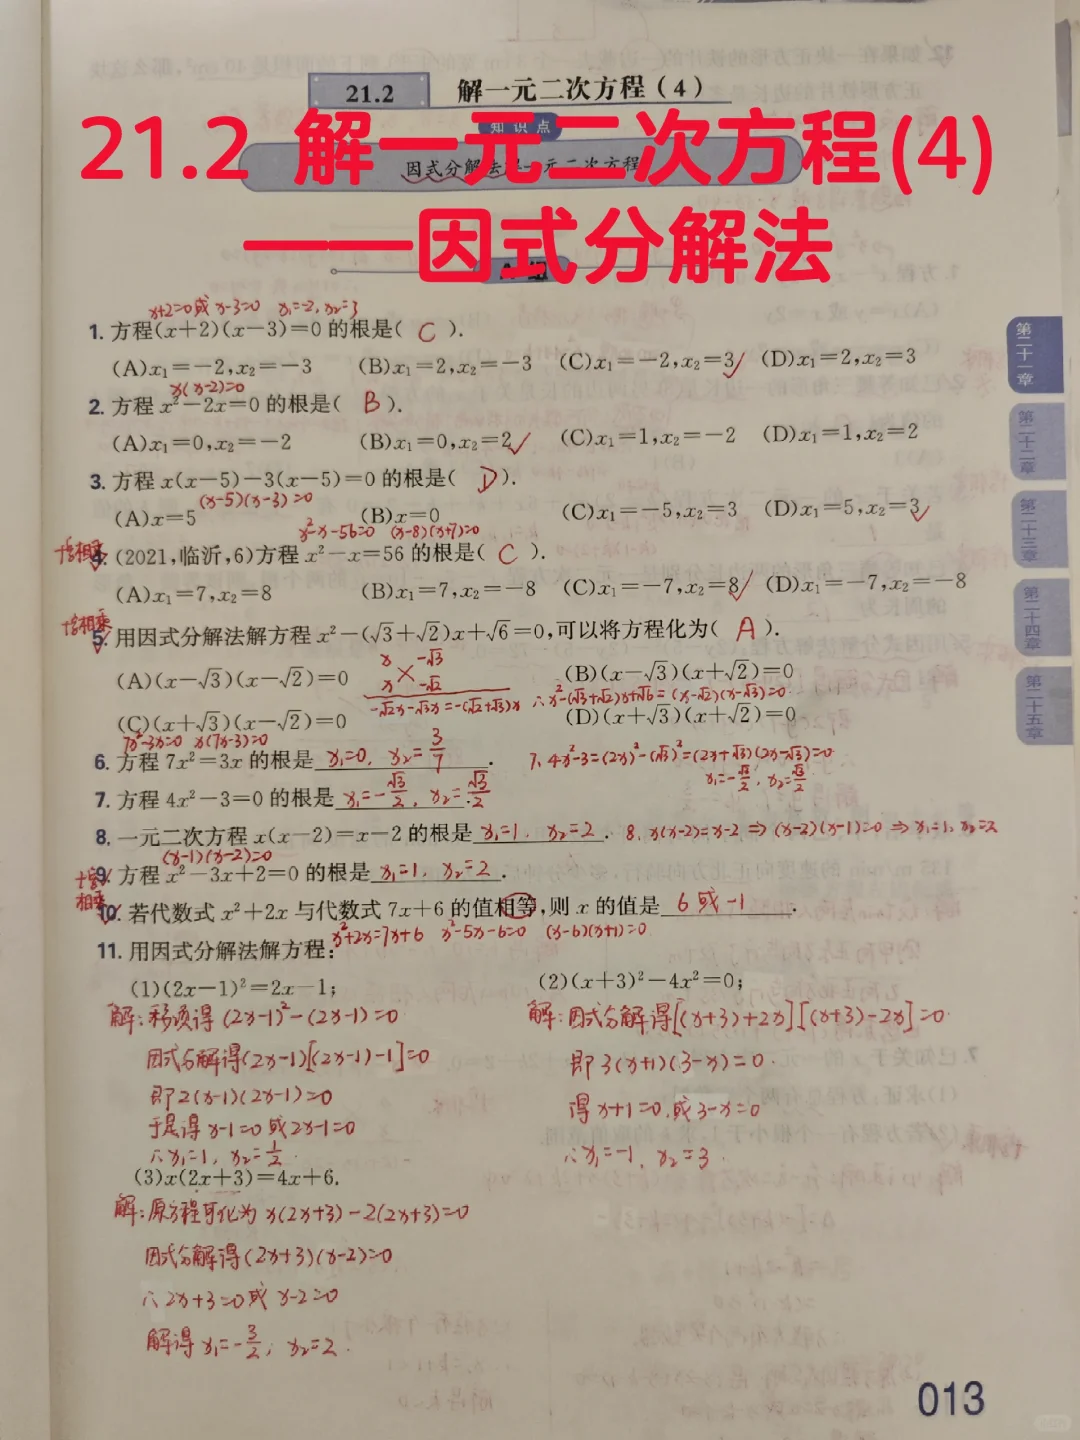 21.2 解一元二次方程(4)
知识点
21.2 解一元二次方程(4)
因式分解法解一元二次方程
——因式分解法
A 组
x+2=0或 x-3=0 x₁=-2, x₂=3
1. 方程(x+2)(x-3)=0 的根是( C ).
(A)x₁=-2,x₂=-3 (B)x₁=2,x₂=-3 (C)x₁=-2,x₂=3✓ (D)x₁=2,x₂=3
x(x-2)=0
2. 方程 x²-2x=0 的根是( B ).
(A)x₁=0,x₂=-2 (B)x₁=0,x₂=2✓ (C)x₁=1,x₂=-2 (D)x₁=1,x₂=2
3. 方程 x(x-5)-3(x-5)=0 的根是( D ).
(x-5)(x-3)=0
(A)x=5 (B)x=0 (C)x₁=-5,x₂=3 (D)x₁=5,x₂=3✓
x²-x-56=0 (x-8)(x+7)=0
十字相乘
4. (2021,临沂,6)方程 x²-x=56 的根是( C ).
(A)x₁=7,x₂=8 (B)x₁=7,x₂=-8 (C)x₁=-7,x₂=8✓ (D)x₁=-7,x₂=-8
十字相乘
5. 用因式分解法解方程 x²-(√3+√2)x+√6=0,可以将方程化为( A ).
x -√3
(A)(x-√3)(x-√2)=0 (B)(x-√3)(x+√2)=0
x -√2
-√2x-√3x=-(√2+√3)x ∴x²-(√3+√2)x+√6=(x-√2)(x-√3)=0
(C)(x+√3)(x-√2)=0 (D)(x+√3)(x+√2)=0
7x²-3x=0 x(7x-3)=0
6. 方程 7x²=3x 的根是 x₁=0, x₂=3/7 .
7. 4x²-3=(2x)²-(√3)²=(2x+√3)(2x-√3)=0
x₁=-√3/2, x₂=√3/2
7. 方程 4x²-3=0 的根是 x₁=-√3/2, x₂=√3/2 .
8. 一元二次方程 x(x-2)=x-2 的根是 x₁=1, x₂=2 . 8. x(x-2)=x-2 ⇒ (x-2)(x-1)=0 ⇒ x₁=1, x₂=2
(x-1)(x-2)=0
9. 方程 x²-3x+2=0 的根是 x₁=1, x₂=2 .
十字相乘
10. 若代数式 x²+2x 与代数式 7x+6 的值相等,则 x 的值是 6或-1 .
x²+2x=7x+6 x²-5x-6=0 (x-6)(x+1)=0
11. 用因式分解法解方程:
(1)(2x-1)²=2x-1; (2)(x+3)²-4x²=0;
解:移项得 (2x-1)²-(2x-1)=0
因式分解得(2x-1)[(2x-1)-1]=0
即2(x-1)(2x-1)=0
于是得 x-1=0或2x-1=0
∴x₁=1, x₂=1/2.
解:因式分解得[(x+3)+2x][(x+3)-2x]=0
即 3(x+1)(3-x)=0.
得 x+1=0,或 3-x=0
∴x₁=-1, x₂=3.
(3)x(2x+3)=4x+6.
解:原方程可化为 x(2x+3)-2(2x+3)=0
因式分解得(2x+3)(x-2)=0
∴2x+3=0或 x-2=0
解得 x₁=-3/2, x₂=2.
第二十一章
第二十二章
第二十三章
第二十四章
第二十五章
013